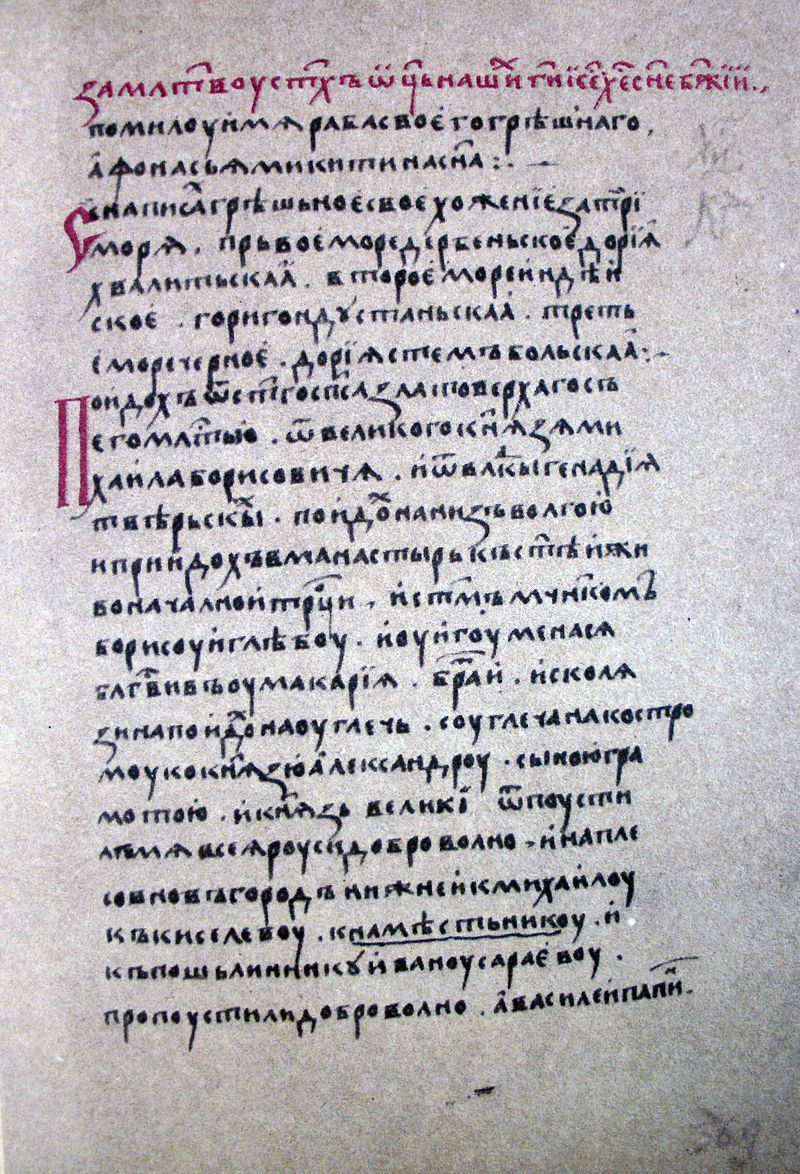 за млтв҃оу ст҃хъ ѿц҃ь наши гс҃и іс҃е хе҃ сн҃е бж҃ій.,
помилоуй мя раба своего грѣшнаго,
афонасья микитина сн҃а :.
Се написа грѣшьное свое хожение за три
моря, прьвое море дербеньское дорія
хвалитьскаа. второе море индѣй
ское. горигондустаньскаа. треть
е море черное. дорія стемъбольскаа :.
Поидохъ ѿ ст҃го сп҃са златоверхаго съ
его млт҃ью. ѿ великого кн҃язя ми
хаила борисовичя. и ѿ влк҃ы генадія
твѣрьскы. поидо на низь волгою
и приидохъ в манастырь къ ст҃ѣй жи
воначалной трц҃и, и ст҃мъ мч҃нкомъ
борисоу и глѣбоу. и оу игоумена ся
блг҃вивъ оу макарія. братіи. и с коля
зина поидо на оуглечь. с оуглеча на костро
моу ко кн҃язю александроу. с ыною гра
мотою. и кн҃язь великі ѿпоусти
лъ мя всея роуси добровольно. и на пле
со в новъгородъ нижней к михайлоу
къ киселевоу. к намѣстьникоу. и
къ пошьлинникоу иваноу сараевоу.
пропоустили доброволно. а василей папи.
369